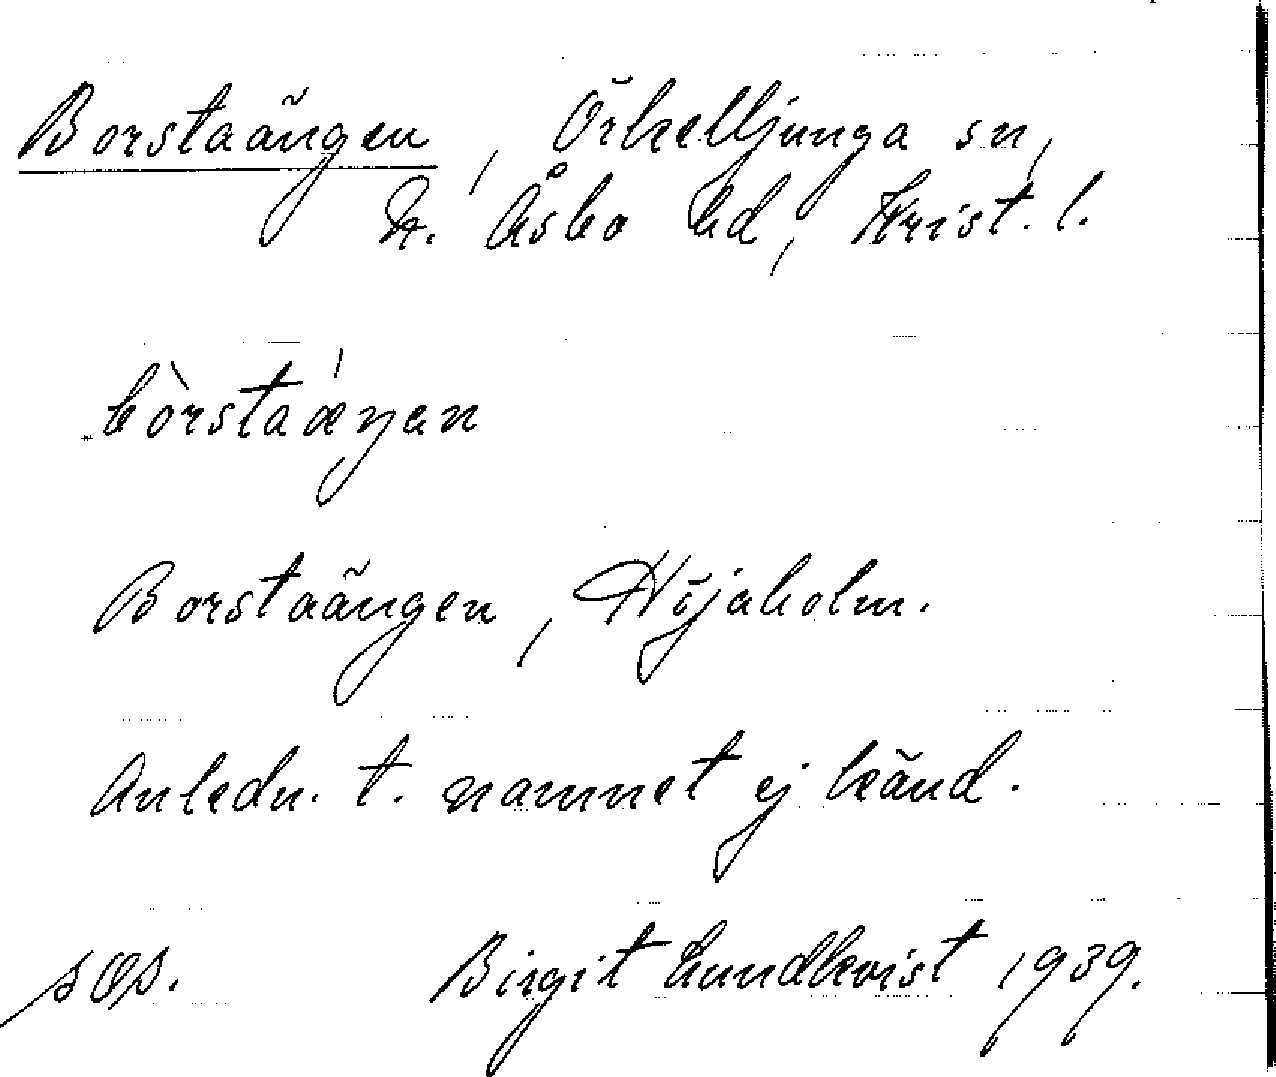 Borstaängen, Örkelljunga sn,
N. Åsbo hd, Krist. l.
bòrstaæ̀ŋan
Borstaängen, Höjaholm.
Anledn. t. namnet ej känd.
Birgit Lundkvist 1939.